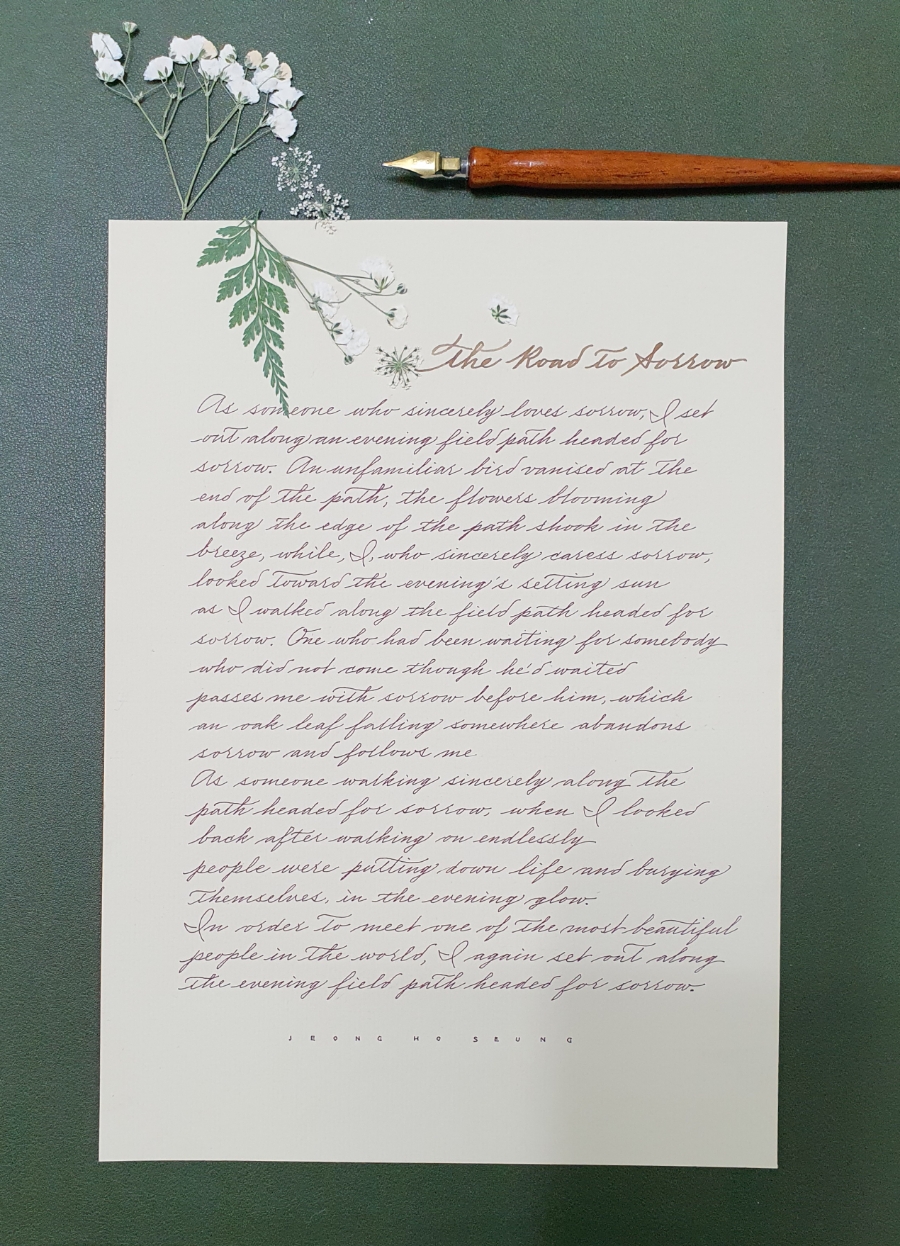 The Road To Sorrow
As someone who sincerely loves sorrow, I set
out along an evening field path headed for
sorrow. An unfamiliar bird vanised at the
end of the path, the flowers blooming
along the edge of the path shook in the
breeze, while, I, who sincerely caress sorrow,
looked toward the evening's setting sun
as I walked along the field path headed for
sorrow. One who had been waiting for somebody
who did not come though he'd waited
passes me with sorrow before him, which
an oak leaf falling somewhere abandons
sorrow and follows me.
As someone walking sincerely along the
path headed for sorrow, when I looked
back after walking on endlessly
people were putting down life and burying
themselves, in the evening glow.
In order to meet one of the most beautiful
people in the world, I again set out along
the evening field path headed for sorrow.
JEONG HO SEUNG